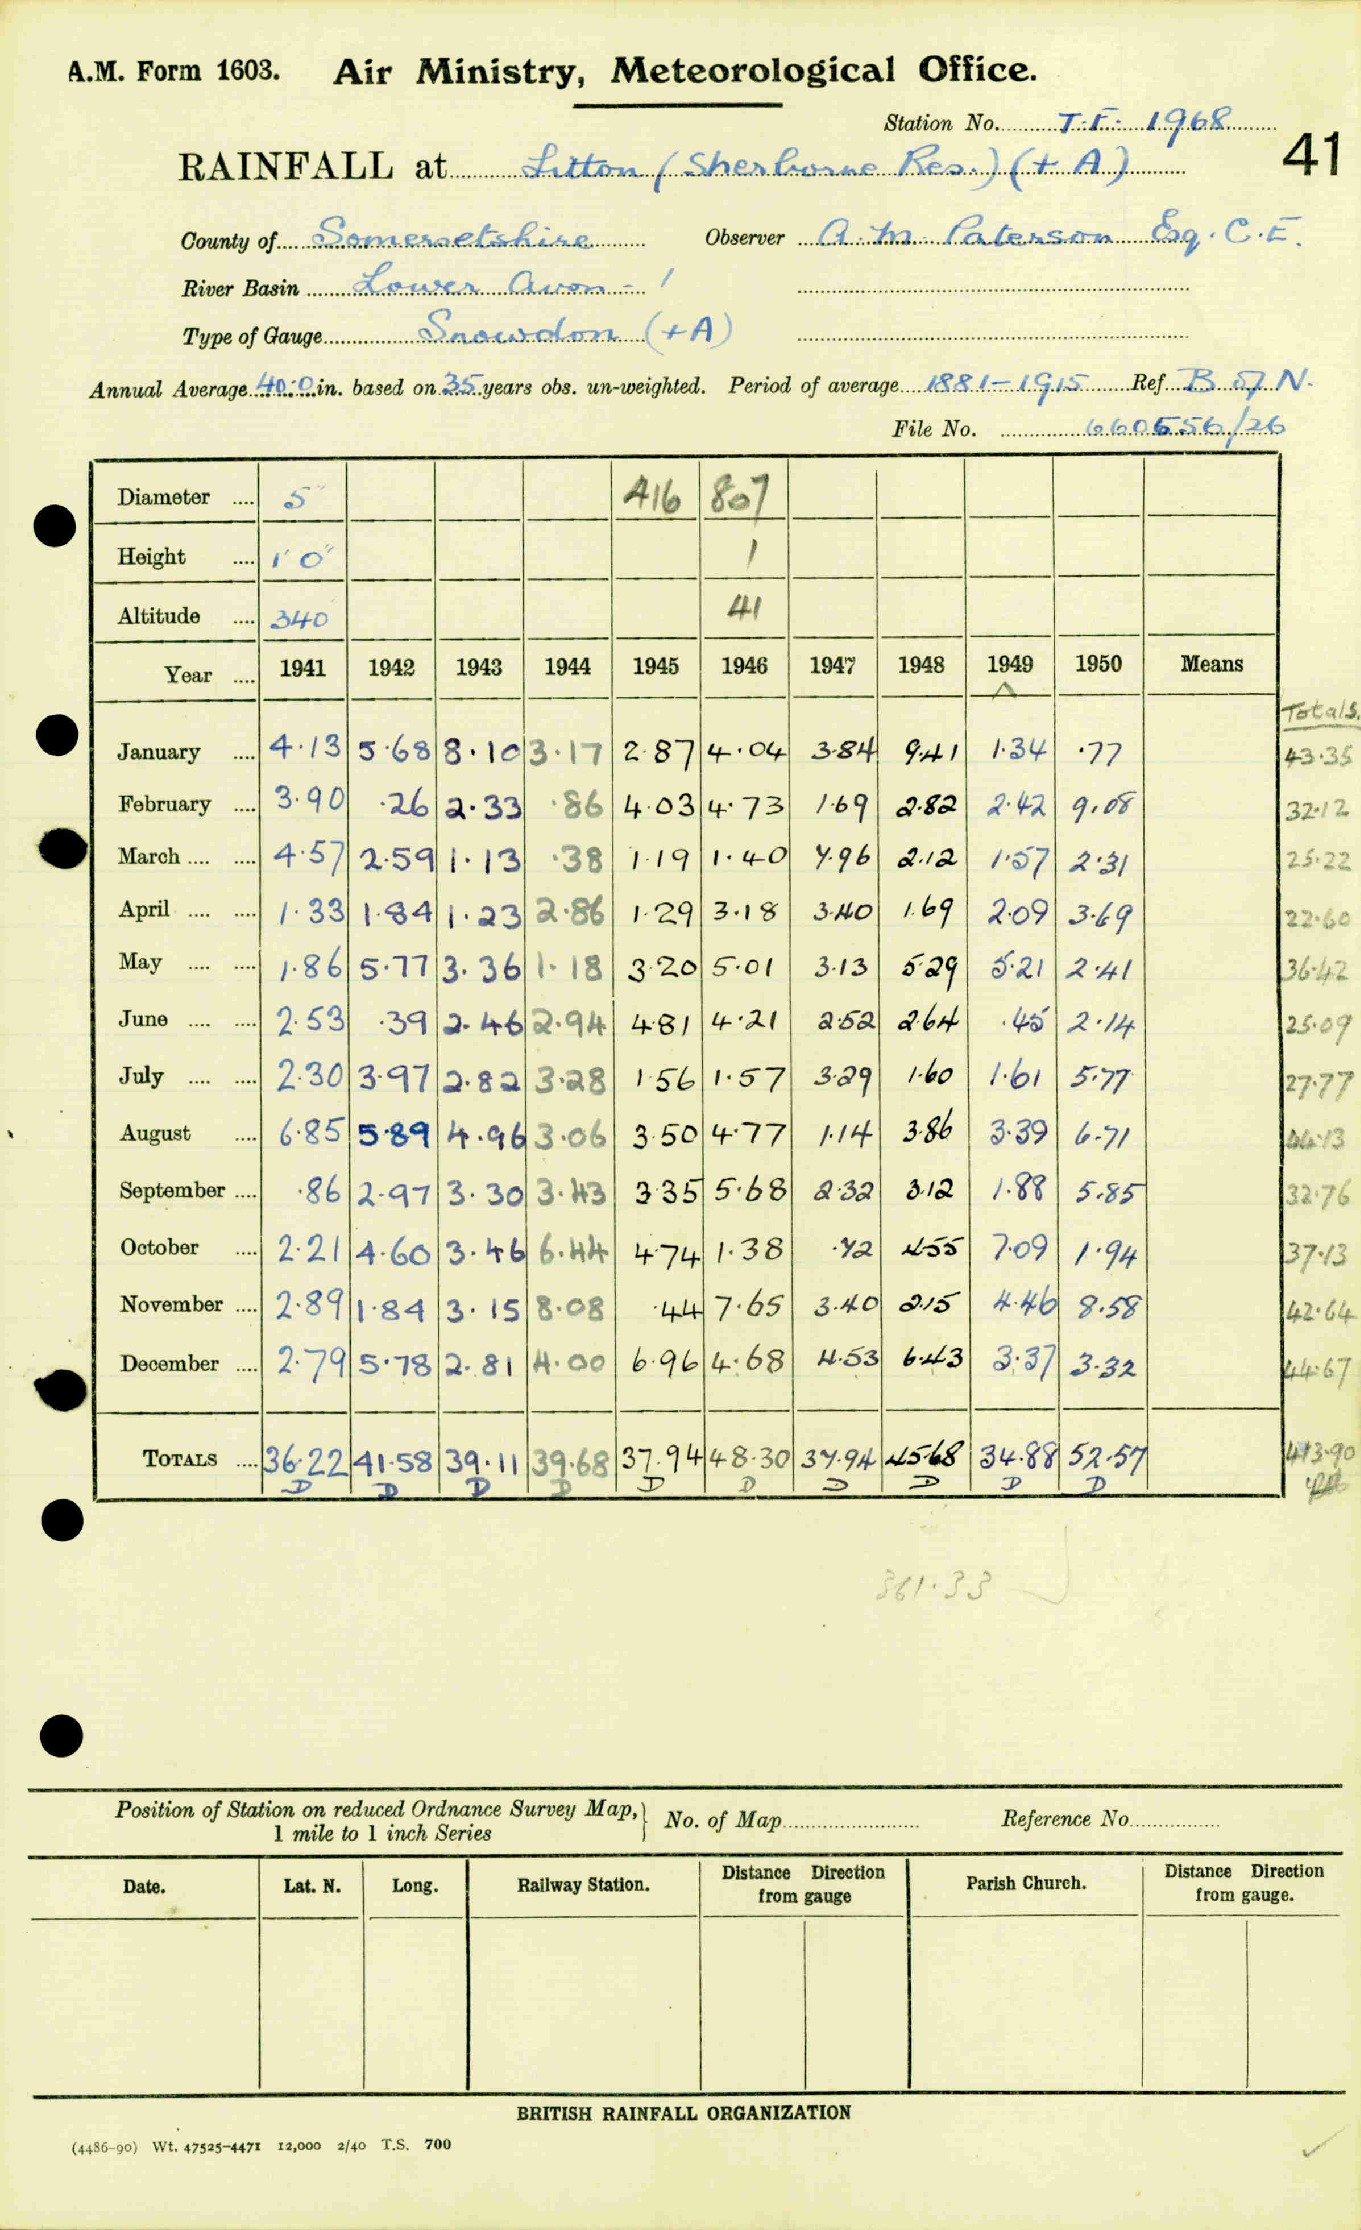 A.M. Form 1603. Air Ministry, Meteorological Office.
Station No. T.F. 1968
41
RAINFALL at Litton (Sherborne Res.) (+ A)
County of Somersetshire Observer A. M. Paterson Esq. C.E.
River Basin Lower Avon - 1
Type of Gauge Snowdon (+A)
Annual Average 40.0 in. based on 35 years obs. un-weighted. Period of average 1881-1915 Ref. B of N.
File No. 660556/26
Diameter .... 5" 416 807
Height .... 1' 0" 1
Altitude .... 340 41
Year .... 1941 1942 1943 1944 1945 1946 1947 1948 1949 1950 Means
Totals.
January .... 4.13 5.68 8.10 3.17 2.87 4.04 3.84 9.41 1.34 .77 43.35
February .... 3.90 .26 2.33 .86 4.03 4.73 1.69 2.82 2.42 9.08 32.12
March .... .... 4.57 2.59 1.13 .38 1.19 1.40 7.96 2.12 1.57 2.31 25.22
April .... .... 1.33 1.84 1.23 2.86 1.29 3.18 3.40 1.69 2.09 3.69 22.60
May .... .... 1.86 5.77 3.36 1.18 3.20 5.01 3.13 5.29 5.21 2.41 36.42
June .... .... 2.53 .39 2.46 2.94 4.81 4.21 2.52 2.64 .45 2.14 25.09
July .... .... 2.30 3.97 2.82 3.28 1.56 1.57 3.29 1.60 1.61 5.77 27.77
August .... 6.85 5.89 4.96 3.06 3.50 4.77 1.14 3.86 3.39 6.71 44.13
September .... .86 2.97 3.30 3.43 3.35 5.68 2.32 3.12 1.88 5.85 32.76
October .... 2.21 4.60 3.46 6.44 4.74 1.38 .72 4.55 7.09 1.94 37.13
November .... 2.89 1.84 3.15 8.08 .44 7.65 3.40 2.15 4.46 8.58 42.64
December .... 2.79 5.78 2.81 4.00 6.96 4.68 4.53 6.43 3.37 3.32 44.67
TOTALS .... 36.22 41.58 39.11 39.68 37.94 48.30 37.94 45.68 34.88 52.57 413.90
D D D D D D D D D D
361.33
Position of Station on reduced Ordnance Survey Map, } No. of Map Reference No.
1 mile to 1 inch Series
Date. Lat. N. Long. Railway Station. Distance Direction from gauge Parish Church. Distance Direction from gauge.
BRITISH RAINFALL ORGANIZATION
(4486-90) Wt. 47525-4471 12,000 2/40 T.S. 700